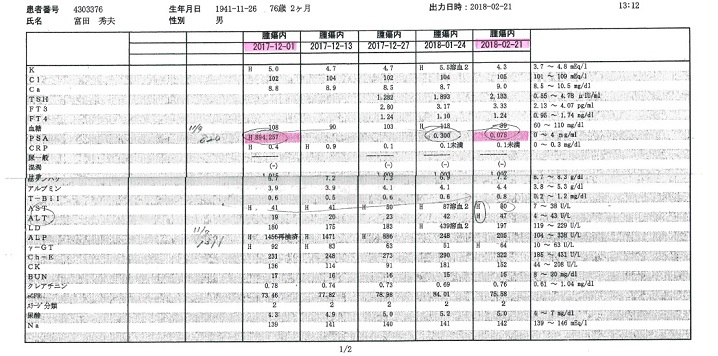 患者番号 4303376 生年月日 1941-11-26 76歳 2ヶ月 出力日時：2018-02-21 13:12
氏名 富田 秀夫 性別 男
腫瘍内 腫瘍内 腫瘍内 腫瘍内 腫瘍内
2017-12-01 2017-12-13 2017-12-27 2018-01-24 2018-02-21
K H 5.0 4.7 4.7 H 5.5溶血2 4.3 3.7 ～ 4.8 mEq/l
Cl 102 104 102 104 105 101 ～ 109 mEq/l
Ca 8.8 8.9 8.5 8.7 9.0 8.5 ～ 10.5 mg/dl
TSH 1.282 1.893 2.133
FT3 2.80 3.17 3.33 2.13 ～ 4.07 pg/ml
FT4 1.24 1.10 1.24 0.95 ～ 1.74 ng/dl
血糖 108 90 103 H 60 ～ 110 mg/dl
PSA H 0.300 0.075 0 ～ 4 ng/ml
CRP H 0.4 H 0.9 0.1 0.1未満 0.1未満 0 ～ 0.3 mg/dl
尿一般
(-) (-) (-)
6.7 ～ 8.3 g/dl
アルブミン 3.9 3.9 4.1 4.1 4.4 3.8 ～ 5.3 g/dl
T-Bil 0.6 0.5 0.6 0.6 0.8 0.2 ～ 1.2 mg/dl
AST H 41 H 41 H H 87溶血2 H 7 ～ 38 U/L
ALT 19 20 23 42 H 47 4 ～ 43 U/L
LD 180 175 182 H 439溶血2 197 119 ～ 229 U/L
ALP H 1456再検済 H 1471 H 886 248 104 ～ 338 U/L
γ-GT H 92 H 83 63 H 81 H 64 10 ～ 63 U/L
Ch-E 231 248 273 290 322 185 ～ 431 U/L
CK 136 114 91 181 152
BUN 17 16 16 15 16 8 ～ 20 mg/dl
クレアチニン 0.78 0.74 0.73 0.69 0.76 0.61 ～ 1.04 mg/dl
eGFR 73.46 77.82 78.98 84.01 75.58
ｽﾃｰｼﾞ分類 2 2 2 2 2
尿酸 4.3 4.9 5.0 5.2 5.0 4 ～ 7 mg/dl
Na 139 141 140 141 142 139 ～ 146 mEq/l
1/2